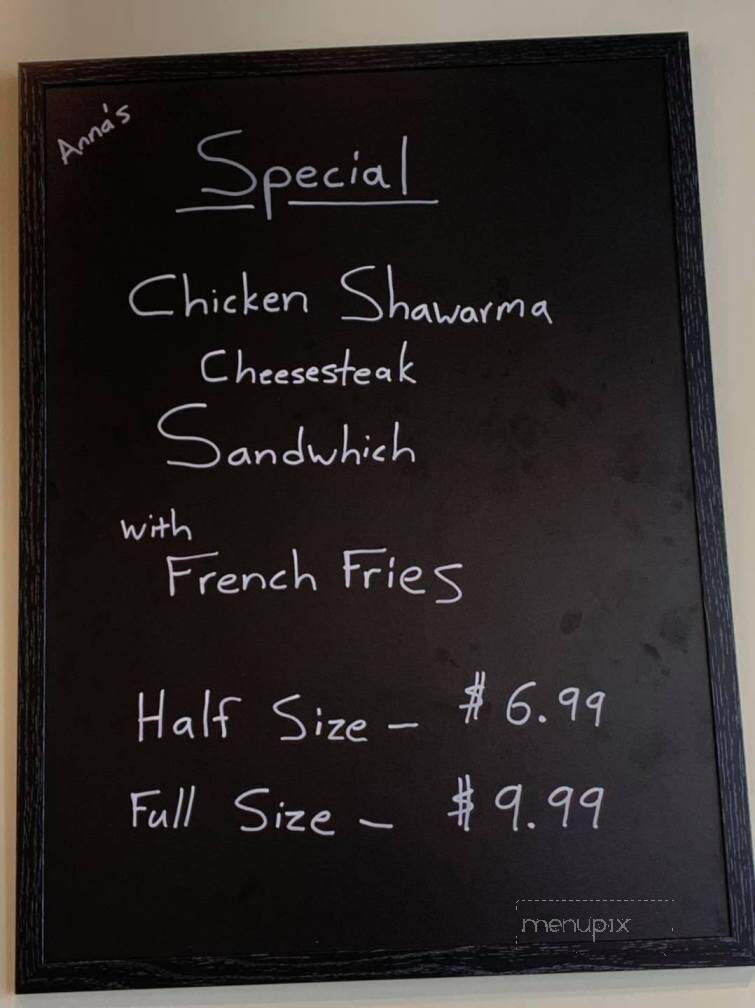 Anna's
Special
Chicken Shawarma
Cheesesteak
Sandwhich
with
French Fries
Half Size - $6.99
Full Size - $9.99
menupix